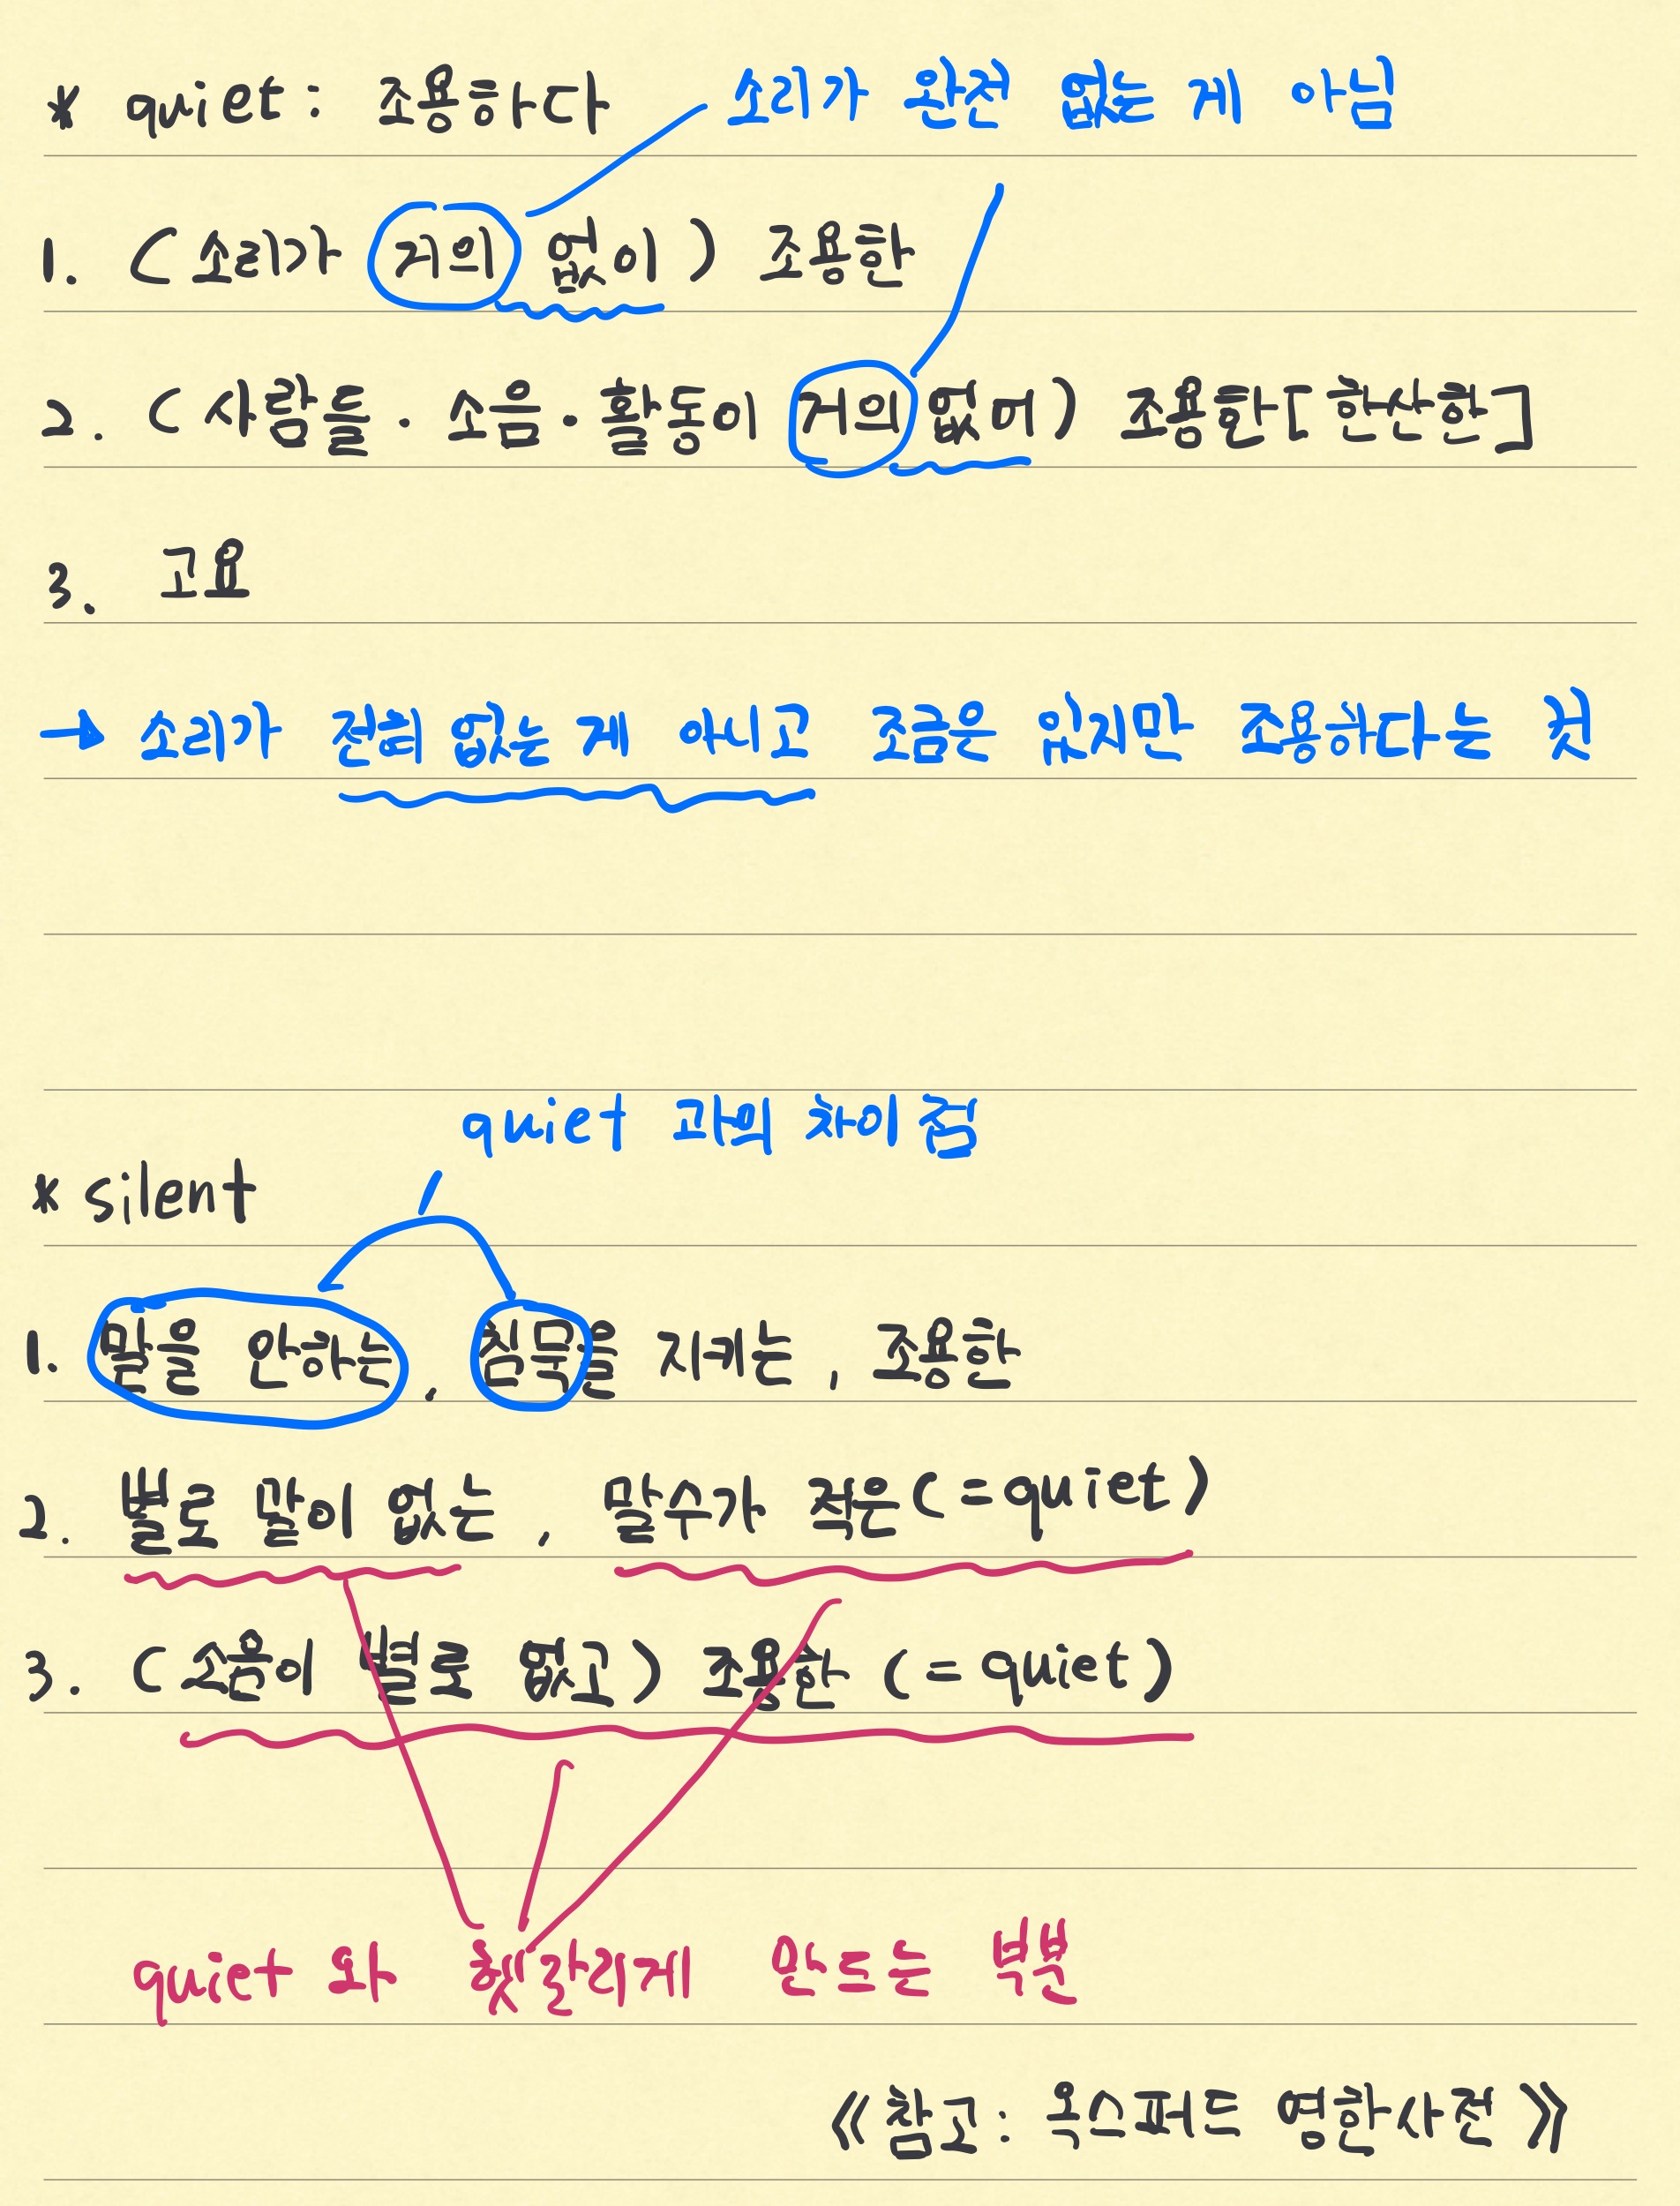 * quiet: 조용하다 소리가 완전 없는 게 아님
1. (소리가 거의 없이) 조용한
2. (사람들·소음·활동이 거의 없어) 조용한[한산한]
3. 고요
→ 소리가 전혀 없는 게 아니고 조금은 있지만 조용하다는 것
quiet 과의 차이점
* silent
1. 말을 안하는, 침묵을 지키는, 조용한
2. 별로 말이 없는, 말수가 적은(=quiet)
3. (소음이 별로 없고) 조용한 (=quiet)
quiet 와 헷갈리게 만드는 부분
《참고: 옥스퍼드 영한사전》